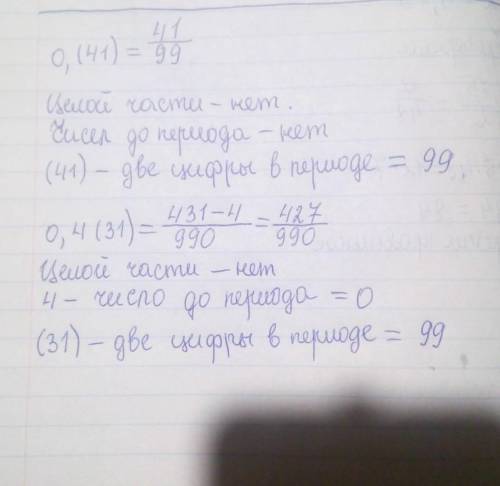 0,(41) = 41/99
Целой части - нет.
Чисел до периода - нет
(41) - две цифры в периоде = 99.
0,4(31) = 431-4/990 = 427/990
Целой части - нет
4 - число до периода = 0
(31) - две цифры в периоде = 99